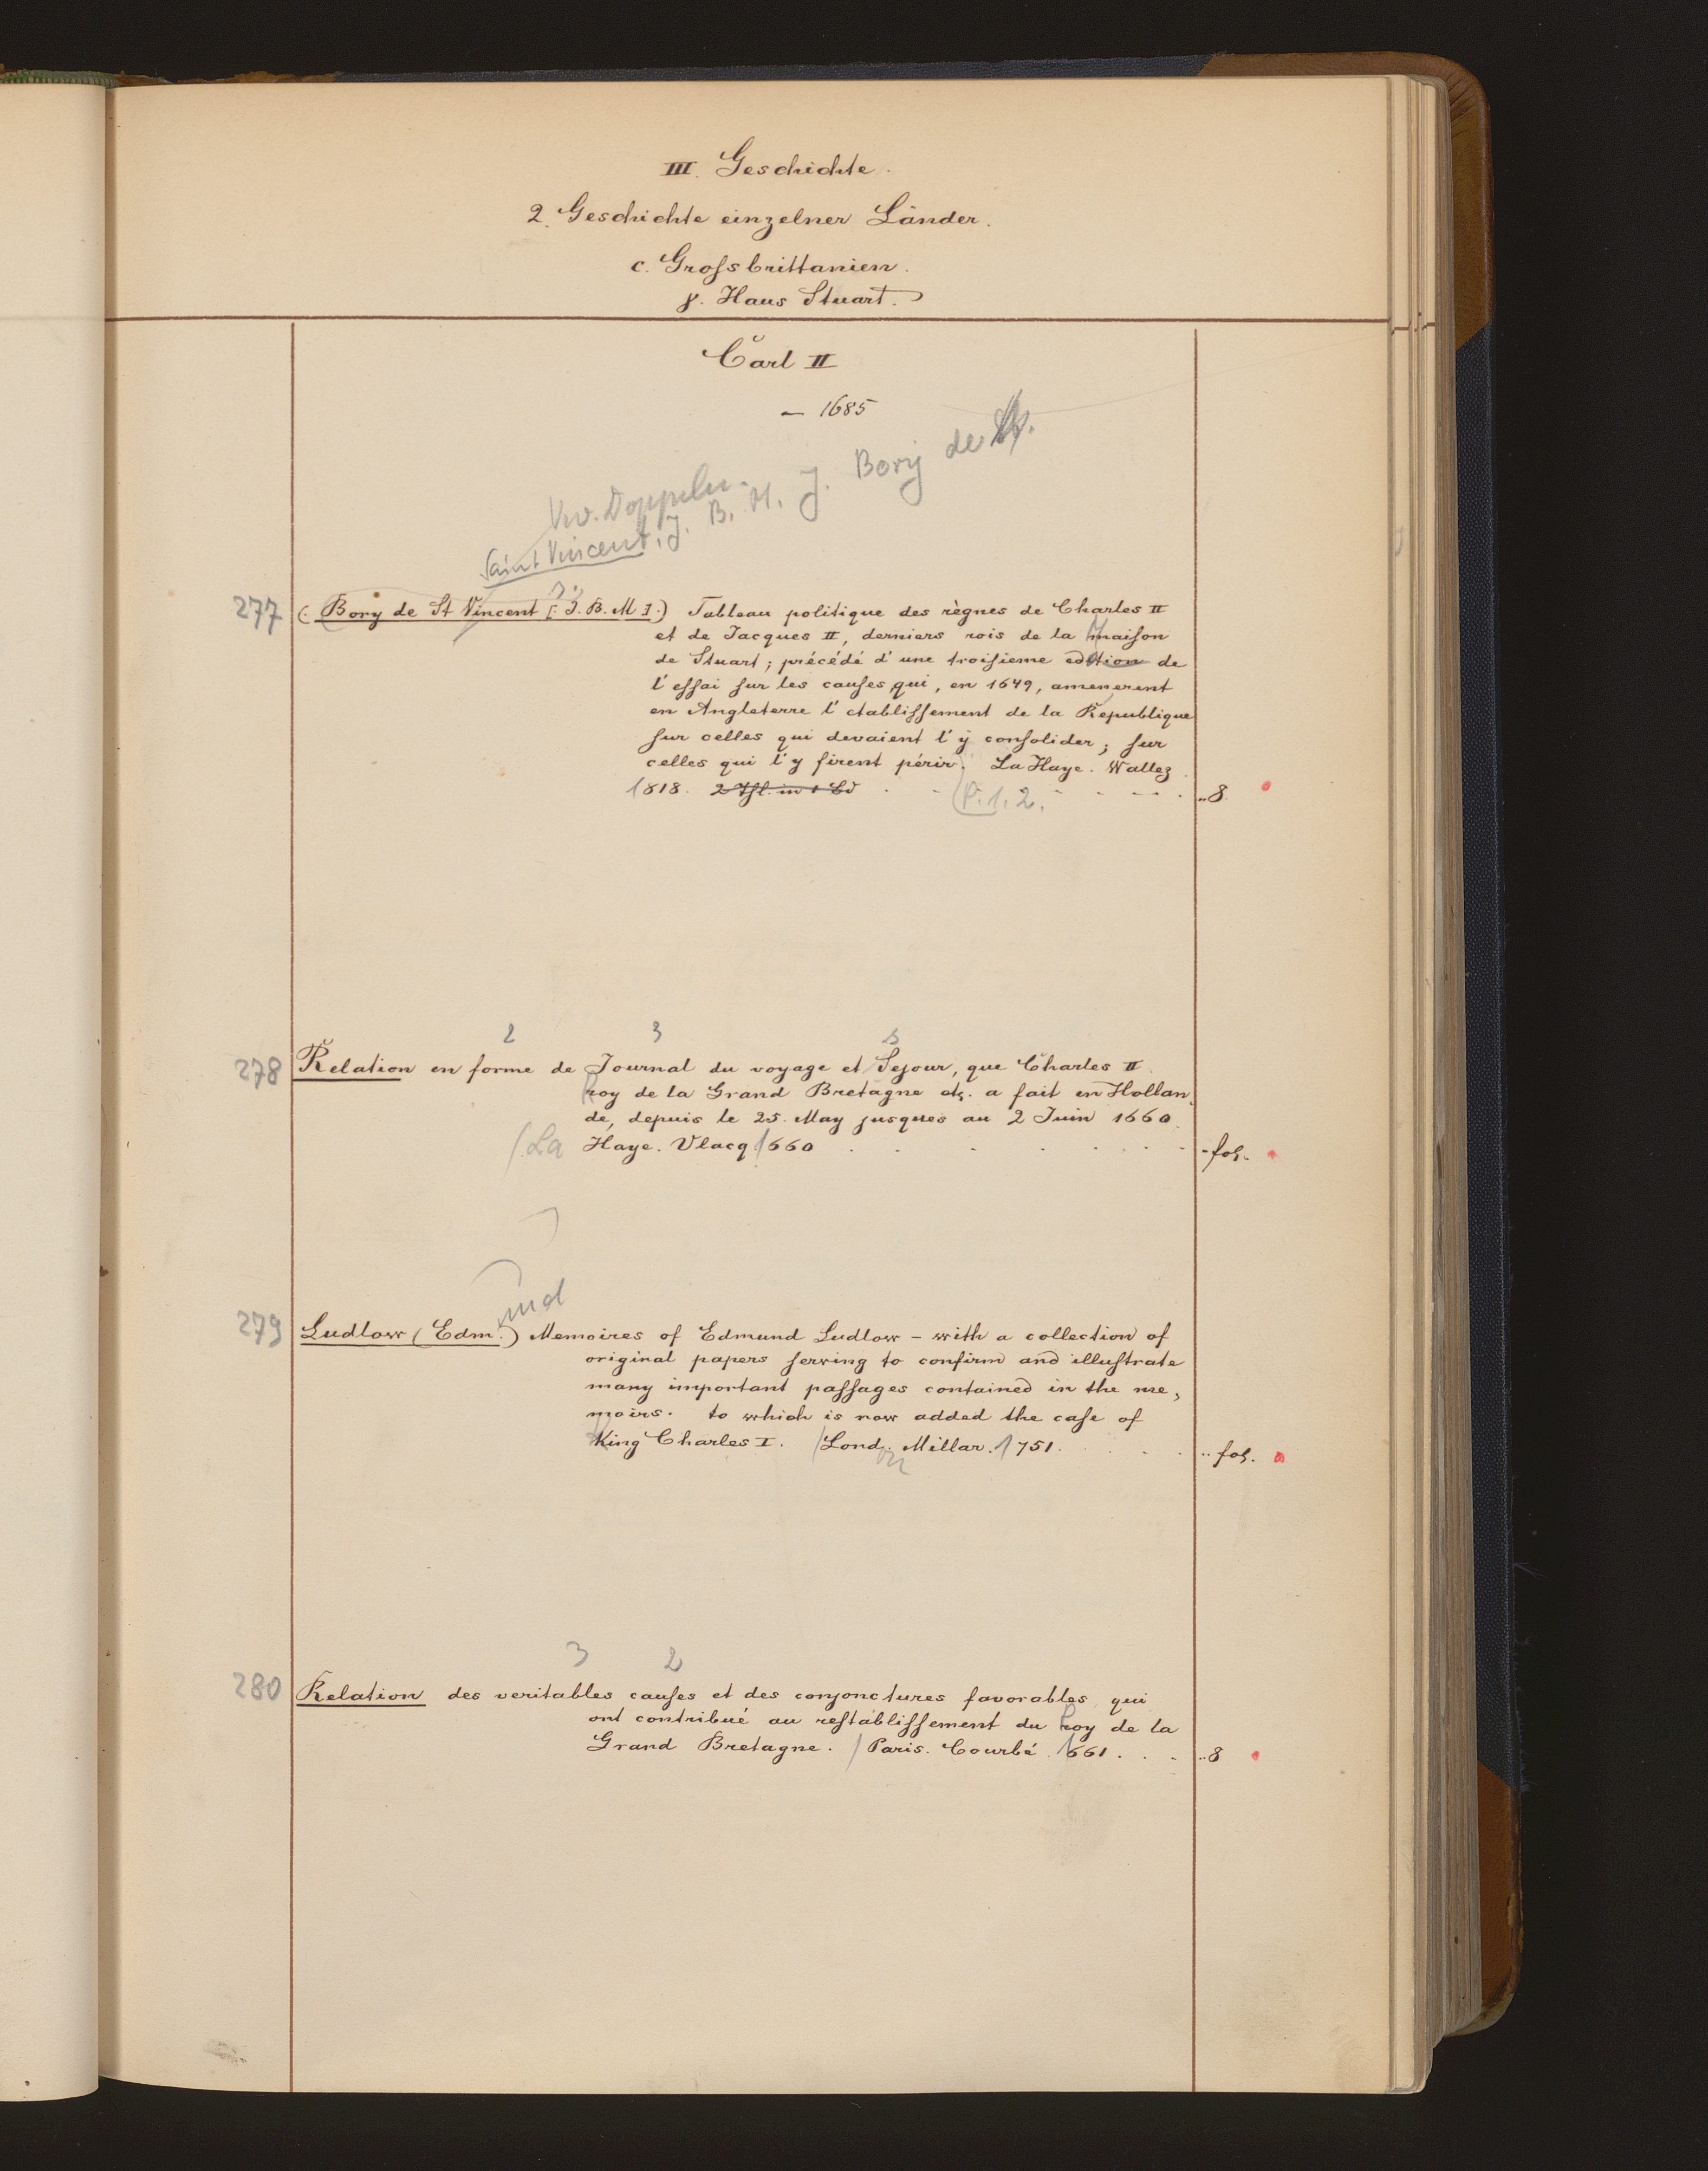 III. Geschichte.
2. Geschichte einzelner Länder.
c. Grossbrittanien.
γ. Haus Stuart.
Carl II
— 1685
Vw. Doppeln.
Saint Vincent, J. B. M. J. Bory de
277 (: Bory de St Vincent [: J. B. M J.) Tableau politique des règnes de Charles II
et de Jacques II, derniers rois de la maison
de Stuart; précédé d'une troisieme edition de
l'essai sur les causes, qui, en 1649, amenerent
en Angleterre l'etablissement de la Republique
sur celles qui devaient l'ÿ consolider; sur
celles qui l'y firent périr. La Haye. Wallez
1818. 2 Thl. in 1 Bd (P. 1. 2. 8.
2 3
278 Relation en forme de Journal du voyage et Sejour, que Charles II
roy de la Grand Bretagne etc. a fait en Hollan-
de, depuis le 25. May jusques au 2 Juin 1660.
(La Haye. Vlacq 1660 fol.
und
279 Ludlow (Edm.) Memoires of Edmund Ludlow – with a collection of
original papers serving to confirm and illustrate
many important passages contained in the me-
moirs. to which is now added the case of
King Charles I. Lond. Millar. 1751. fol.
on
3 2
280 Relation des veritables causes et des conjonctures favorables, qui
ont contribué au restablissement du Roy de la
Grand Bretagne. / Paris. Courbé. 1661. 8